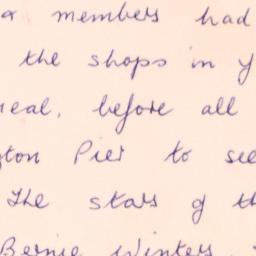 members had
the shops in y
meal, before all
ton Pier to see
The stars of th
Bernie Winters,